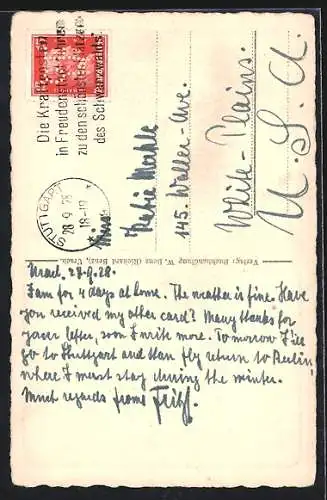 Die Kraftpost
in Freudenstadt führt
zu den schönsten Plätzen
des Schwarzwalds
STUTTGART
28 9 28
18-19
Miss
145. Waller-Ave.
White-Plains.
U. S. A
Verlag: Buchhandlung W. Benz (Richard Benz), Urach.
Urach. 28.9.28.
I am for 4 days at home. The weather is fine. Have
you received my other card? Many thanks for
your letter, soon I write more. Tomorrow I'll
go to Stuttgart and than fly return to Berlin
where I must stay during the winter.
Much regards frome Fritz.